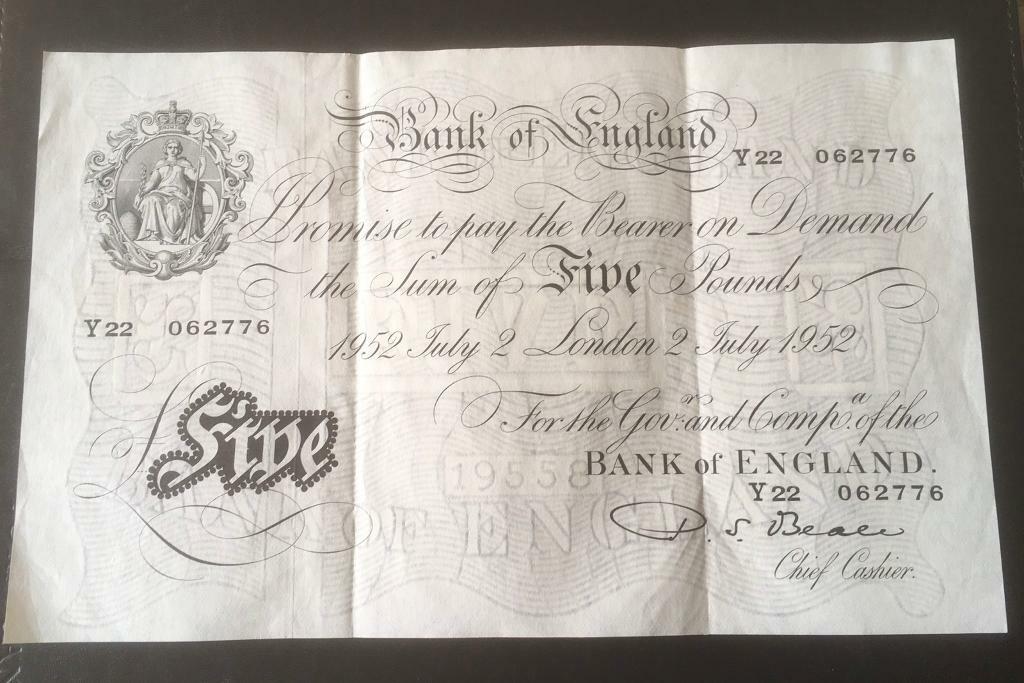 Bank of England
Y22 062776
I Promise to pay the Bearer on Demand
the Sum of Five Pounds
Y22 062776
1952 July 2 London 2 July 1952
For the Govr. and Compa. of the
BANK of ENGLAND.
Five
Y22 062776
P. S. Beale
Chief Cashier.